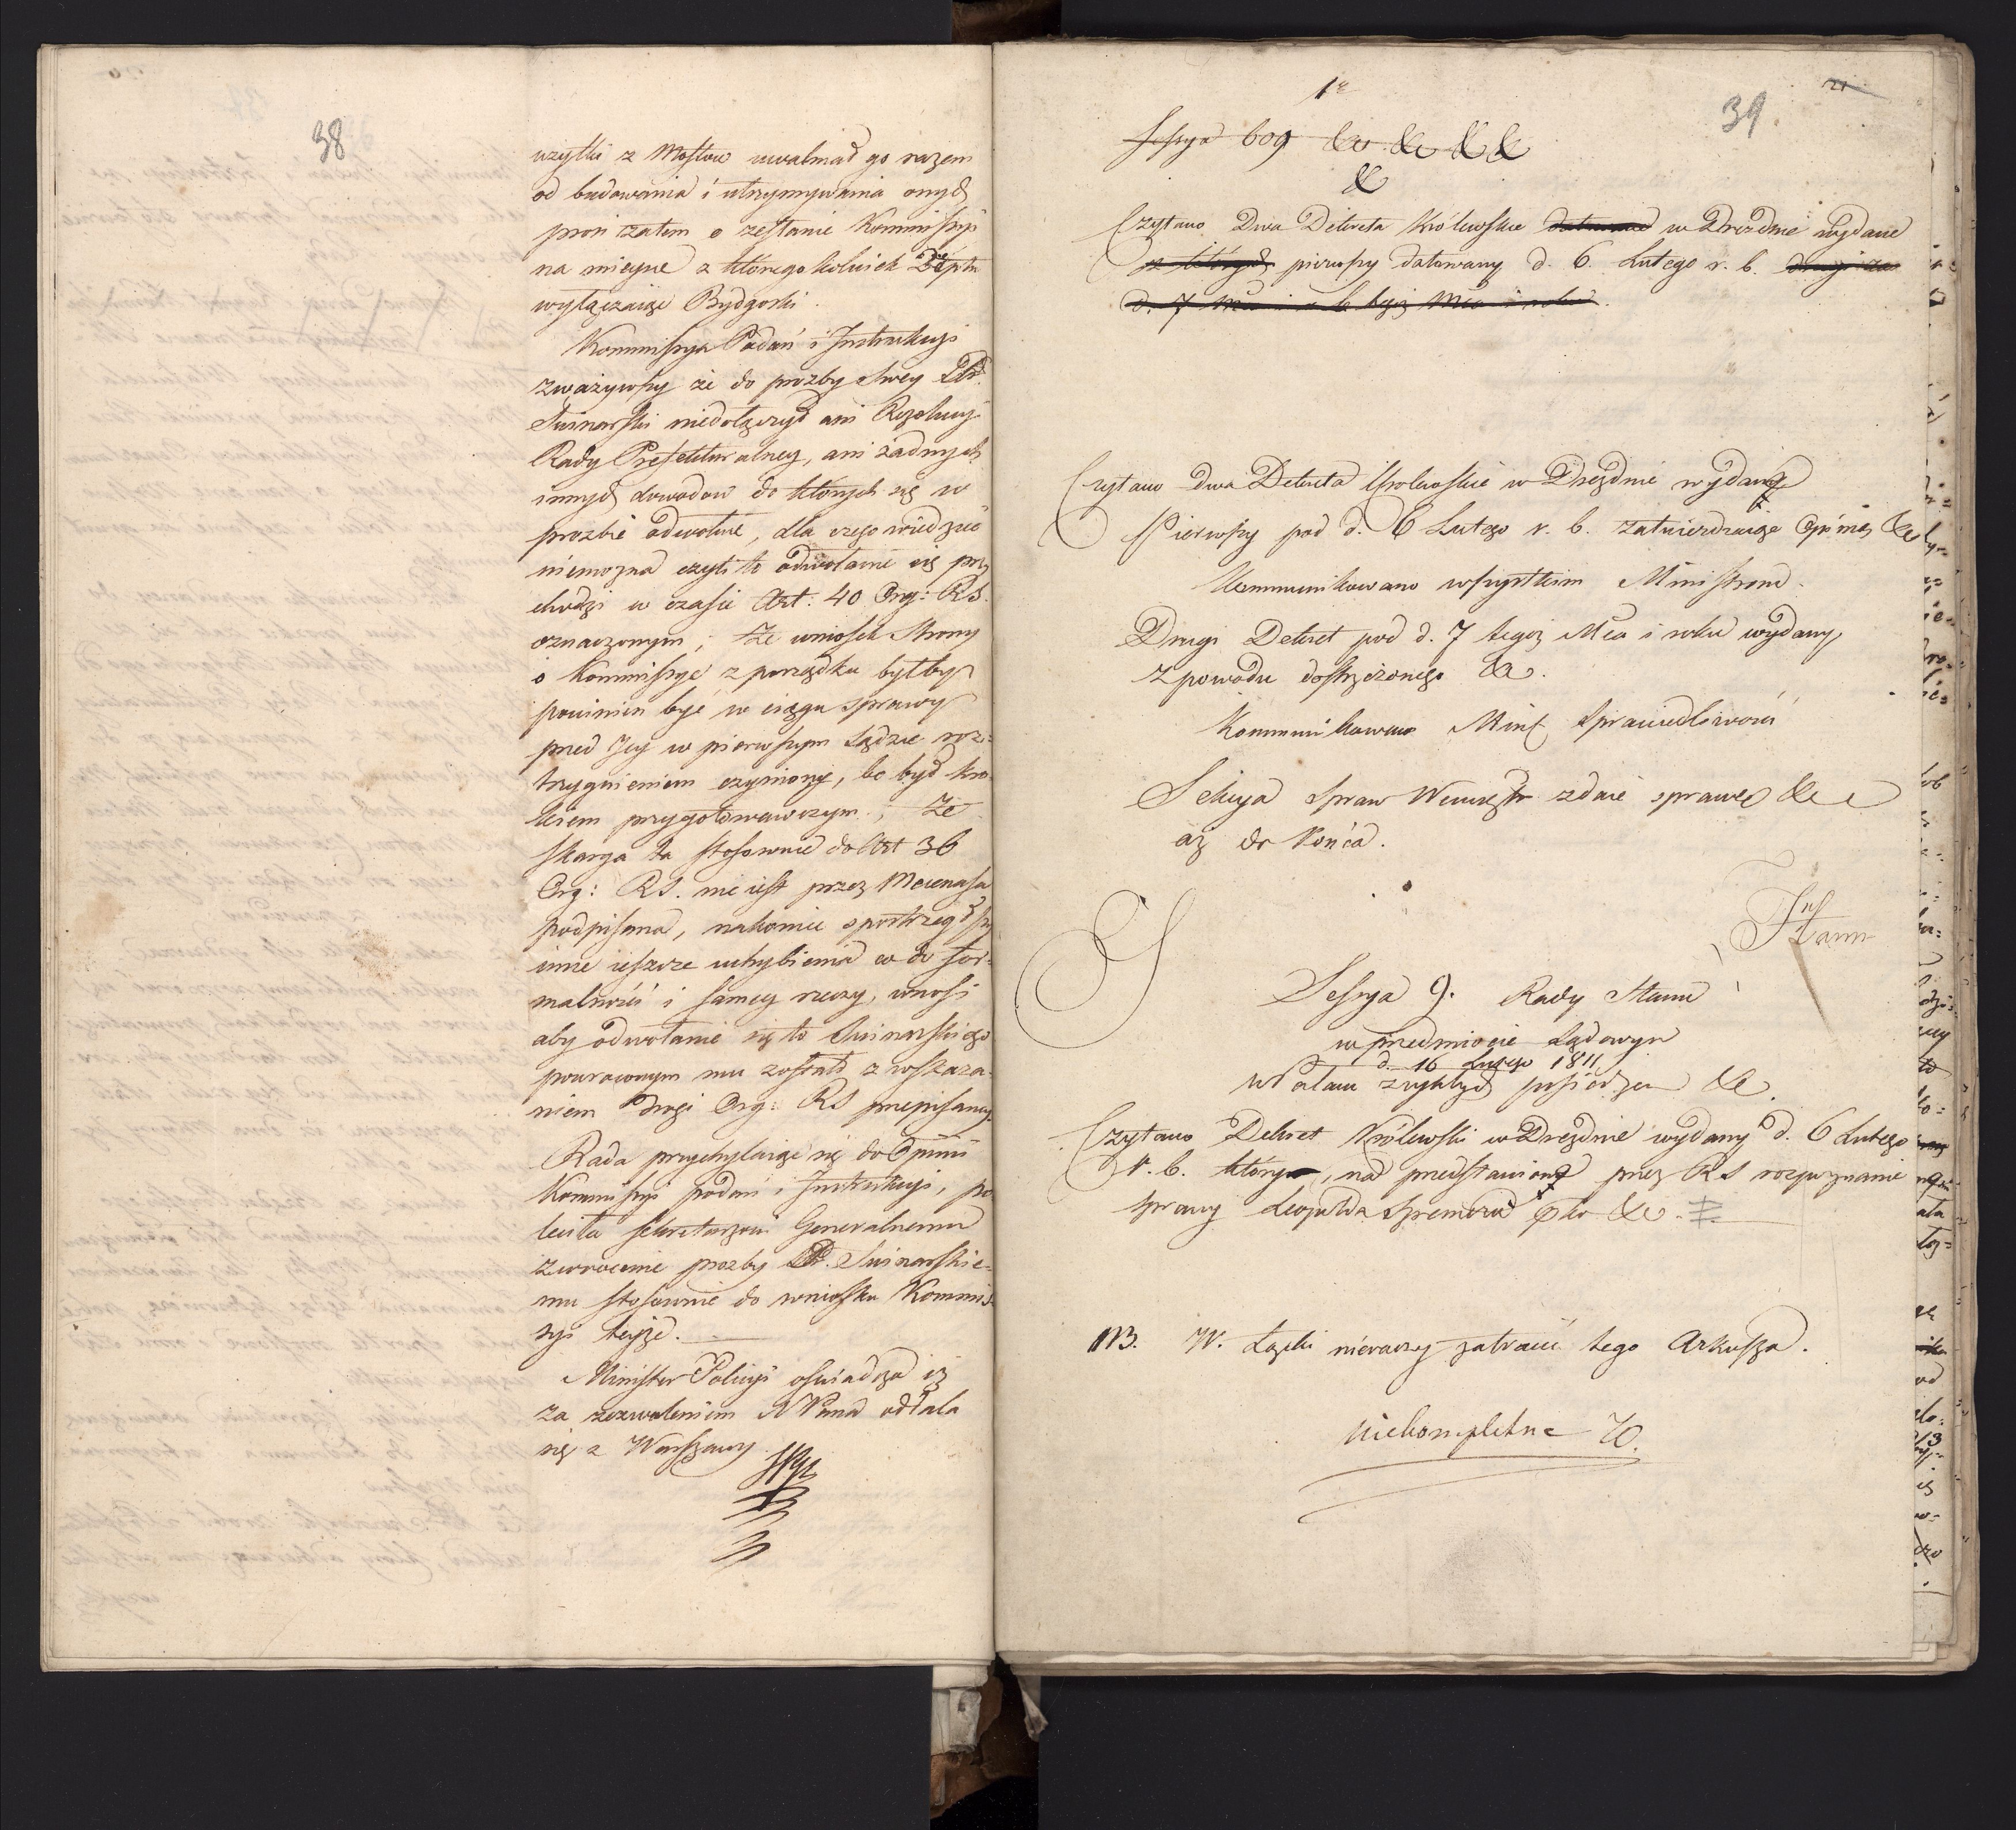 38
użytki z Mostow uwalniał go razem
od budowania i utrzymywania onych
prosi zatem o zesłanie Kommissyi
na mieysce z któregokolwiek Deptu
wyłączaiąc Bydgoski.
Kommissya Podań i Instrukcyi
zważywszy że do prozby swey
Swinarski niedołączył ani Rezolucyi
Rady Prefekturalney, ani żadnych
innych dowodow do których się w
prozbie odwołuie, dla czego wiedzieć
niemożna czyli to odwołanie się przy
chodzi w czasie Art: 40 Org: RS.
oznaczonym; że wniosek Strony
o Kommissyę z porządku byłby
powinien być w ciągu sprawy
przed Jey w pierwszym Sądzie roz=
trzygnieniem czyniony, bo był kro=
kiem przygotowawczym; że
skarga ta stosownie do Art 36
Org: RS. nie iest przez Mecenasa
podpisana, nakoniec spostrzegłszy
inne ieszcze uchybienia co do for=
malności i samey rzeczy, wnosi
aby odwołanie się to Swinarskiego
powroconym mu zostało z wskaza=
niem drogi Org: RS przepisaney.
Rada przychylaiąc się do Opinii
Kommissyi podań i Instrukcyi, po
leciła Sekretarzowi Generalnemu
zwrocenie prozby Swinarskie=
mu stosownie do wniosku Kommis
syi teyże.
Minister Policyi oświadcza iż
za zezwoleniem NPana oddala
się z Warszawy.
39.
Sessya 609 &c &c & &
&
Czytano Dwa Dekreta Królewskie w Dreźdnie wydane
pierwszy datowany d. 6. Lutego r. b.
Czytano dwa Dekreta Krolewskie w Dreźdnie wydane
Pierwszy pod d. 6 Lutego r. b. zatwierdzaiące Opinię &c
Kommunikowano wszystkim Ministrom.
Drugi Dekret pod d. 7 tegoż Mca i roku wydany,
z powodu dostrzeżonego &c.
Kommunikowano Mins Sprawiedliwości
Sekcya Spraw Wewnętr zdaie sprawę &c
aż do Końca.
Sessya 9. Rady Stanu
w przedmiocie Sądowym
d. 16 Lutego 1811
W Pałacu zwykłych posiedzeń &c.
Czytano Dekret Królewski w Dreźdnie wydany d. 6 Lutego
r. b. który, nad przedstawione przez RS rozpoznanie
sprawy Leopolda &c.
NB. W. Łącki nieraczy zatracić tego Arkusza.
niekompletne